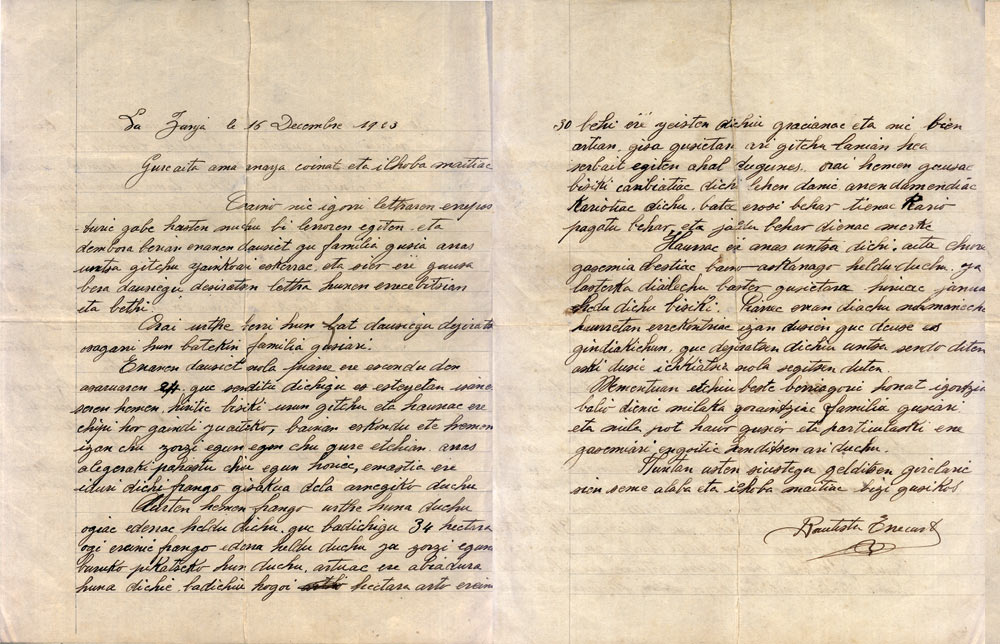 La Zunja le 16 Decembre 1923
Gure aita ama anaya coinat eta ilhoba maitiac
Eraino nic igorri lettraren errepos
turic gabe hasten nuchu bi lerroren egiten. eta
dembora berian erranen dausiet gu familia gusia arras
untsa gitchu yainkoari eskerrac, eta sior ere gausa
bera dausegu desiratsen lettra hunen errecebitsian
eta bethi.
Orai urthe berri hun bat dausiegu desiratse
osagarri hun batekin familia gusiari.
Erranen dausiet nola fuane ere escundu den
asaruaren 24, gue senditu dichigu es esteyetan isanes
seren hemen, hintic bisiki urrun gitchu eta haurrac ere
chipi hor gaindi yuaiteko, bainan eskondu ete hemen
izan chu zorzi egun egin chu gure etchian. arras
alegeraki pasastu chu egun horiec, emastia ere
iduri dichi frango gisakua dela arnegiko duchu
Aurten hemen frango urthe huna duchu
ogiac ederrac heldu dichu, gue badichigu 34 hectara
ogi ereinic frango iderra heldu duchu ja zorzi egun
buruko pikatseko hun duchu, artuac ere abiadura
huna dichie, badichiu hogoi hectara arto ereinic
30 behi ere yeisten dichiu gracianac eta nic bien
artian, gisa gusietan ari gitchu lanian hea
serbait egiten ahal dugunes. orai hemen gausac
bisiki canbiatiac dich lehen danic arrendamendiac
Kariotiac dichu, batec erosi behar tienac Kario
pagatu behar, eta saldu behar dienac merke
Haurrac ere arras untsa dichi, aita churi
gasemia bestiac baino askarrago heldu duchu. ja
lasterka dialechu baster gusietara huriec janua
heldu dichu bisiki. Piarric erran diachu normanech
hurretan errekontruc izan dusen gue deuse es
gindiakichun, gue desiratsen dichiu untsa sendo diten
aski dusie ichkiatria nola segitsen duten.
Mementuan etchiu beste berriagorri horrat igortzia
balio dienic milaka goraintziac familia gusiari
eta mila pot haur gusier eta particulaski ene
gasemiari engoitic handissen ari duchu.
Huntan usten siustegu geldiben girelaric
sien seme alaba eta ilhoba maitiac bizi gusikos
Bautista Enecart